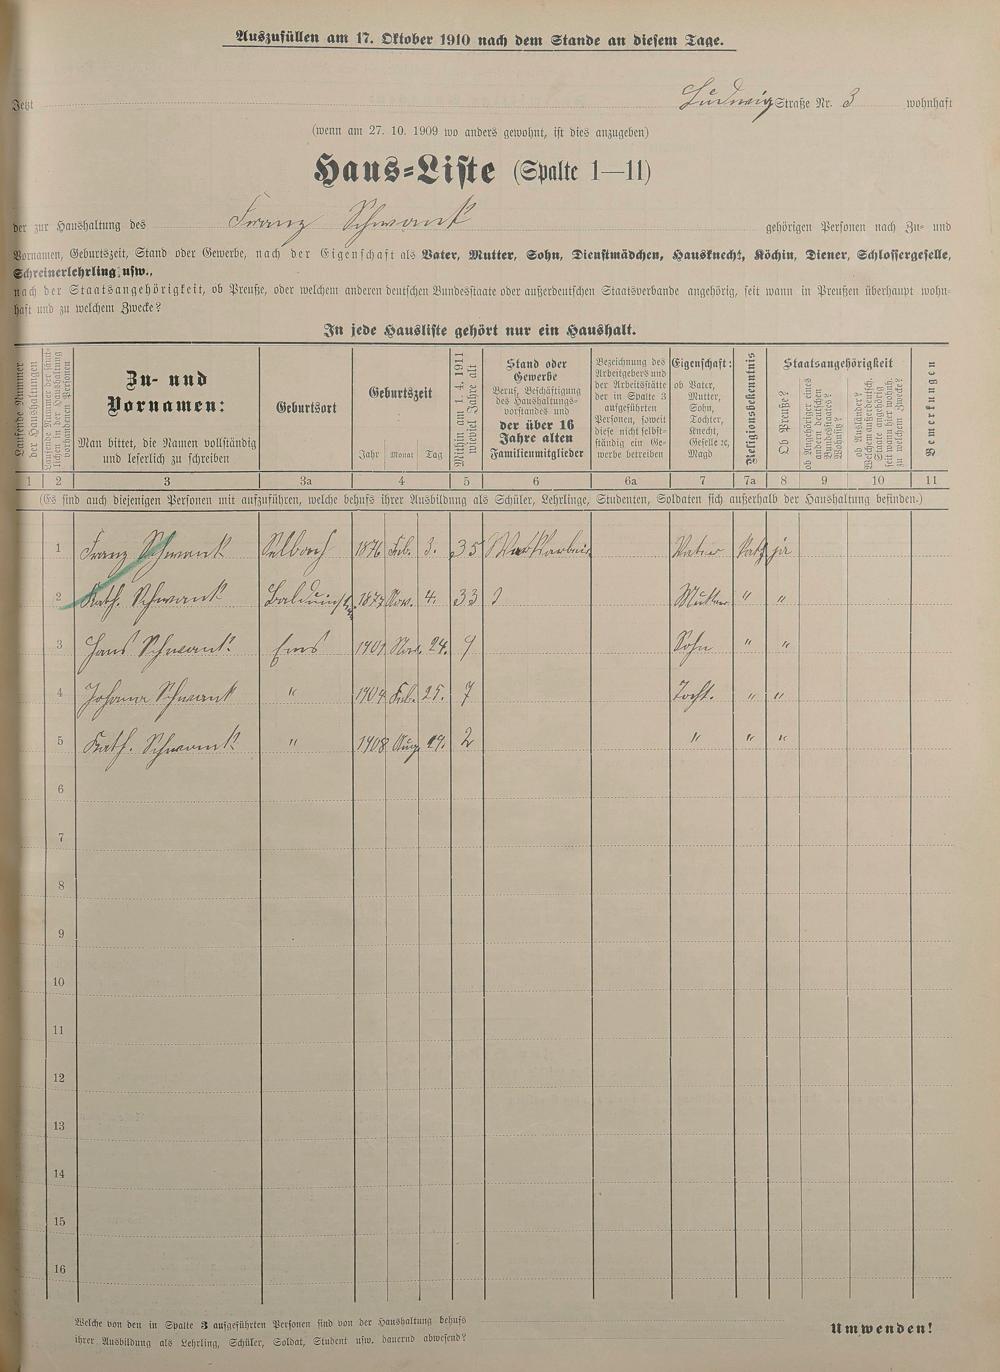 Auszufüllen am 17. Oktober 1910 nach dem Stande an diesem Tage.
Jetzt Ludwig Straße Nr. 3 wohnhaft
(wenn am 27. 10. 1909 wo anders gewohnt, ist dies anzugeben)
Haus-Liste (Spalte 1—11)
der zur Haushaltung des Franz Schwank gehörigen Personen nach Zu- und
Vornamen, Geburtszeit, Stand oder Gewerbe, nach der Eigenschaft als Vater, Mutter, Sohn, Dienstmädchen, Hausknecht, Köchin, Diener, Schlossergeselle,
Schreinerlehrling usw.,
nach der Staatsangehörigkeit, ob Preuße, oder welchem anderen deutschen Bundesstaate oder außerdeutschen Staatsverbande angehörig, seit wann in Preußen überhaupt wohn-
haft und zu welchem Zwecke?
In jede Hausliste gehört nur ein Haushalt.
Laufende Nummer
der Haushaltungen
Laufende Nummer der sämt-
lichen in der Haushaltung
vorhandenen Personen
Zu- und
Vornamen:
Man bittet, die Namen vollständig
und leserlich zu schreiben
Geburtsort
Geburtszeit
Jahr Monat Tag
Mithin am 1. 4. 1911
wieviel Jahre alt
Stand oder
Gewerbe
Beruf, Beschäftigung
des Haushaltungs-
vorstandes und
der über 16
Jahre alten
Familienmitglieder
Bezeichnung des
Arbeitgebers und
der Arbeitsstätte
der in Spalte 3
aufgeführten
Personen, soweit
diese nicht selbst-
ständig ein Ge-
werbe betreiben
Eigenschaft:
ob Vater,
Mutter,
Sohn,
Tochter,
Knecht,
Geselle ꝛc,
Magd
Religionsbekenntnis
Staatsangehörigkeit
Ob Preuße?
ob Angehöriger eines
andern deutschen
Bundesstaates?
Wohnsitz?
ob Ausländer?
Welchem außerdeutsch.
Staate angehörig
seit wann hier wohnh.
zu welchem Zwecke?
Bemerkungen
1 2 3 3a 4 5 6 6a 7 7a 8 9 10 11
(Es sind auch diejenigen Personen mit aufzuführen, welche behufs ihrer Ausbildung als Schüler, Lehrlinge, Studenten, Soldaten sich außerhalb der Haushaltung befinden.)
1 Franz Schwank Selbach 1876 Feb. 3. 35 Vater Kath ja
2 Kath. Schwank 1877 Nov. 4. 33 Mutter " "
3 Hans Schwank Ems 1901 24. 9 Sohn " "
4 Johanna Schwank " 1904 Feb. 25. 7 Tocht. " "
5 Kath. Schwank " 1908 Aug. 29. 2 " " "
6
7
8
9
10
11
12
13
14
15
16
Welche von den in Spalte 3 aufgeführten Personen sind von der Haushaltung behufs
ihrer Ausbildung als Lehrling, Schüler, Soldat, Student usw. dauernd abwesend?
Umwenden!